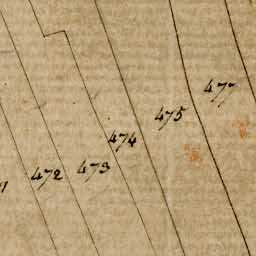 477
475
474
473
472